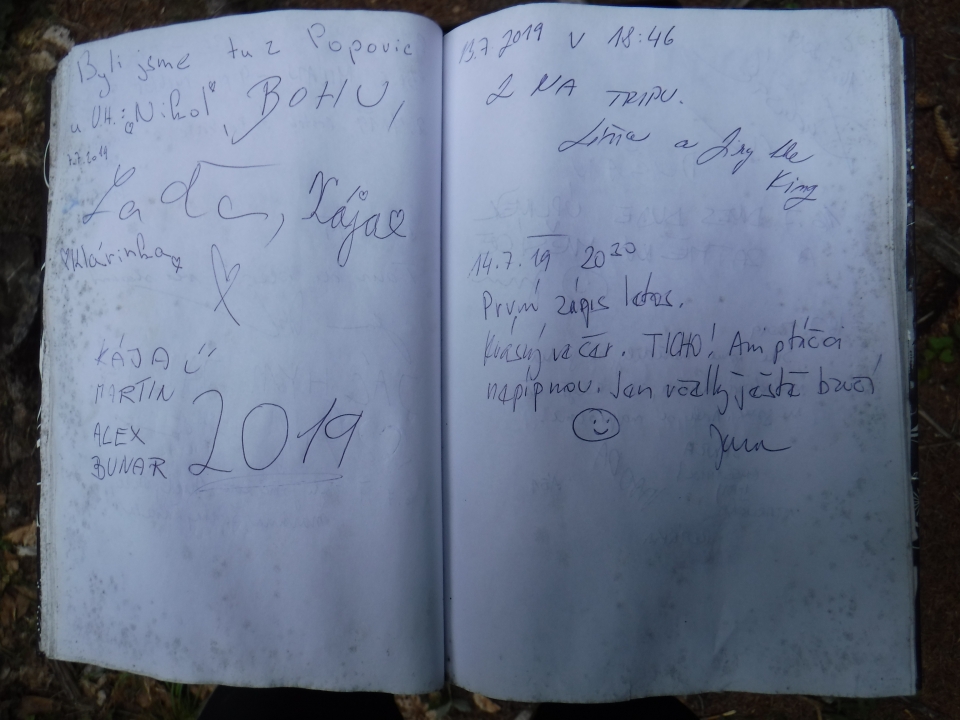 Byli jsme tu z Popovic
u U.H.: Nikol, BOHU,
7.7.2019
Lada, Kája
Klárinka
KÁJA
MARTIN
ALEX
BUNAR
2019
13.7 2019 v 18:46
2 NA TRIPU.
a Jiry the
King
14.7.19 20²⁰
První zápis letos.
Krásný večer. TICHO! Ani ptáčci
nepípnou. Jen včelky ještě bzučí
Jana